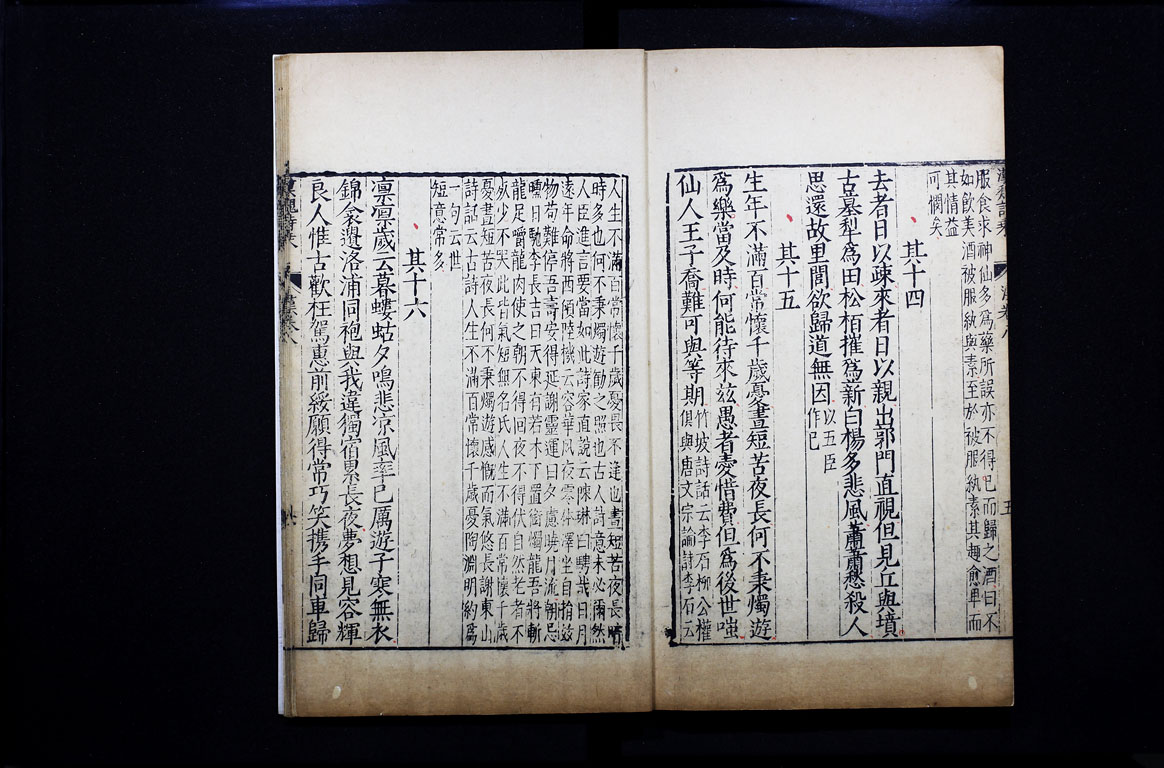 服食求神仙多爲藥所誤亦不得已而歸之酒曰不
如飲美酒被服紈與素至於被服紈素其趣愈卑而
其情益
可憫矣
其十四
去者日以疎來者日以親出郭門直視但見丘與墳
古墓犁爲田松栢摧爲薪白楊多悲風蕭蕭愁殺人
思還故里閭欲歸道無因
以五臣
作已
其十五
生年不滿百常懷千歲憂晝短苦夜長何不秉燭遊
爲樂當及時何能待來兹愚者愛惜費但爲後世嗤
仙人王子喬難可與等期
竹坡詩話云李石柳公權
俱與唐文宗論詩李石云
人生不滿百常懷千歲憂畏不逢也晝短苦夜長暗
時多也何不秉燭遊勸之照也古人詩意未必爾然
人臣進言要當如此詩家直說云陳琳曰騁哉日月
遠年命將西傾陸機云容華夙夜零体澤坐自捐兹
物苟難停吾壽安得延謝靈運曰夕慮曉月流朝忌
曛日馳李長吉曰天東有若木下置銜燭龍吾將斬
龍足嚼龍肉使之朝不得回夜不得伏自然老者不
死少不哭此皆氣短無名氏人生不滿百常懷千歲
憂晝短苦夜長何不秉燭遊感慨而氣悠長謝東山
詩話云古詩人生不滿百常懷千歲憂陶淵明約爲
一句云世
短意常多
其十六
凛凛歲云暮螻蛄夕鳴悲凉風率已厲遊子寒無衣
錦衾遺洛浦同袍與我違獨宿累長夜夢想見容輝
良人惟古歡枉駕惠前綏願得常巧笑携手同車歸